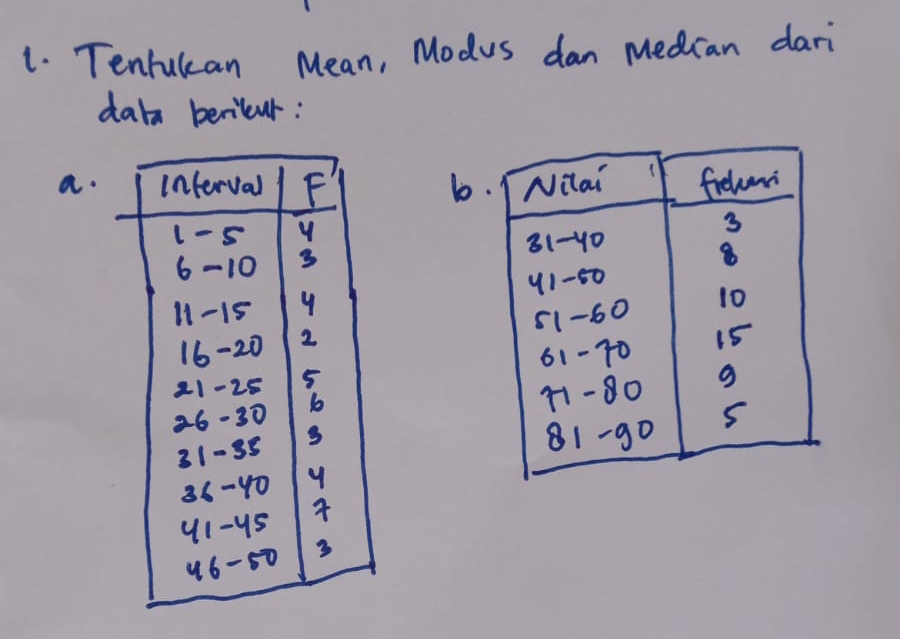 1. Tentukan Mean, Modus dan Median dari
data berikut:
a. Interval F
1-5 4
6-10 3
11-15 4
16-20 2
21-25 5
26-30 6
31-35 3
36-40 4
41-45 7
46-50 3
b. Nilai frekuensi
31-40 3
41-50 8
51-60 10
61-70 15
71-80 9
81-90 5